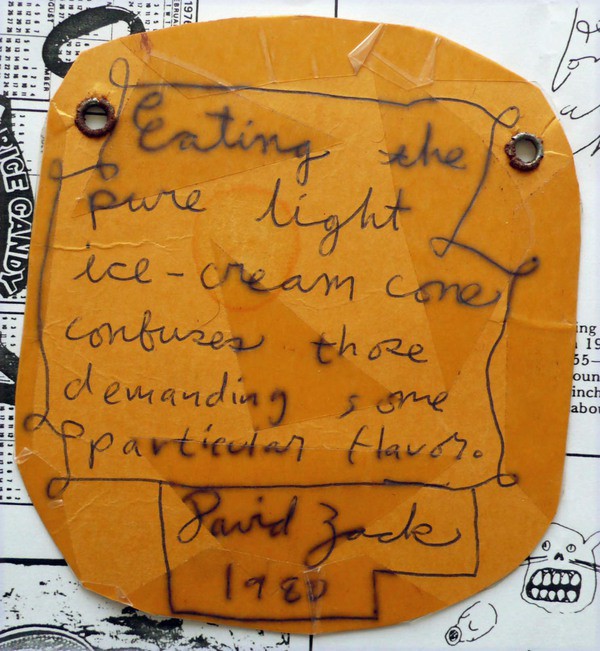 Eating the
pure light
ice-cream cone
confuses those
demanding some
particular flavor.
David Zack
1980
RICE CANDY
1976
ing
55—
inch
abou